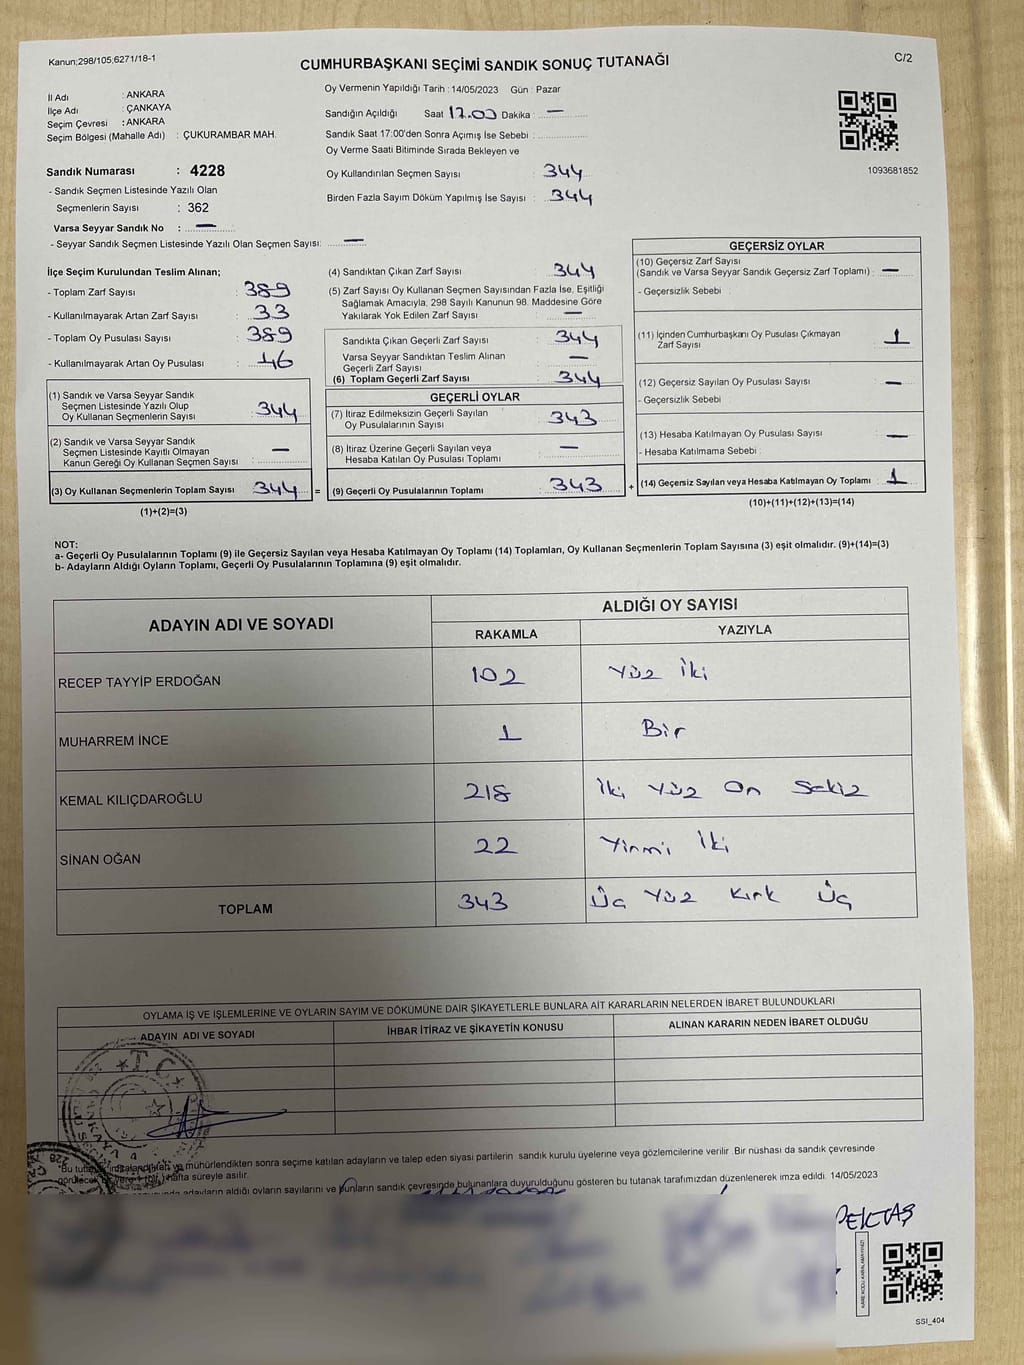 Kanun;298/105;6271/18-1
CUMHURBAŞKANI SEÇİMİ SANDIK SONUÇ TUTANAĞI
C/2
İl Adı : ANKARA
İlçe Adı : ÇANKAYA
Seçim Çevresi : ANKARA
Seçim Bölgesi (Mahalle Adı) : ÇUKURAMBAR MAH.
Sandık Numarası : 4228
- Sandık Seçmen Listesinde Yazılı Olan
Seçmenlerin Sayısı : 362
Varsa Seyyar Sandık No : —
- Seyyar Sandık Seçmen Listesinde Yazılı Olan Seçmen Sayısı: —
Oy Vermenin Yapıldığı Tarih : 14/05/2023 Gün : Pazar
Sandığın Açıldığı Saat 17.00 Dakika : —
Sandık Saat 17:00'den Sonra Açımış İse Sebebi :
Oy Verme Saati Bitiminde Sırada Bekleyen ve
Oy Kullandırılan Seçmen Sayısı : 344
Birden Fazla Sayım Döküm Yapılmış İse Sayısı : 344
1093681852
İlçe Seçim Kurulundan Teslim Alınan;
- Toplam Zarf Sayısı : 389
- Kullanılmayarak Artan Zarf Sayısı : 33
- Toplam Oy Pusulası Sayısı : 389
- Kullanılmayarak Artan Oy Pusulası : 46
(1) Sandık ve Varsa Seyyar Sandık
Seçmen Listesinde Yazılı Olup
Oy Kullanan Seçmenlerin Sayısı : 344
(2) Sandık ve Varsa Seyyar Sandık
Seçmen Listesinde Kayıtlı Olmayan
Kanun Gereği Oy Kullanan Seçmen Sayısı : —
(3) Oy Kullanan Seçmenlerin Toplam Sayısı : 344 =
(1)+(2)=(3)
(4) Sandıktan Çıkan Zarf Sayısı : 344
(5) Zarf Sayısı Oy Kullanan Seçmen Sayısından Fazla İse, Eşitliği
Sağlamak Amacıyla, 298 Sayılı Kanunun 98. Maddesine Göre
Yakılarak Yok Edilen Zarf Sayısı : —
Sandıkta Çıkan Geçerli Zarf Sayısı : 344
Varsa Seyyar Sandıktan Teslim Alınan
Geçerli Zarf Sayısı : —
(6) Toplam Geçerli Zarf Sayısı : 344
GEÇERLİ OYLAR
(7) İtiraz Edilmeksizin Geçerli Sayılan
Oy Pusulalarının Sayısı : 343
(8) İtiraz Üzerine Geçerli Sayılan veya
Hesaba Katılan Oy Pusulası Toplamı : —
(9) Geçerli Oy Pusulalarının Toplamı : 343 +
GEÇERSİZ OYLAR
(10) Geçersiz Zarf Sayısı
(Sandık ve Varsa Seyyar Sandık Geçersiz Zarf Toplamı) : —
- Geçersizlik Sebebi :
(11) İçinden Cumhurbaşkanı Oy Pusulası Çıkmayan
Zarf Sayısı : 1
(12) Geçersiz Sayılan Oy Pusulası Sayısı : —
- Geçersizlik Sebebi :
(13) Hesaba Katılmayan Oy Pusulası Sayısı : —
- Hesaba Katılmama Sebebi :
(14) Geçersiz Sayılan veya Hesaba Katılmayan Oy Toplamı : 1
(10)+(11)+(12)+(13)=(14)
NOT:
a- Geçerli Oy Pusulalarının Toplamı (9) ile Geçersiz Sayılan veya Hesaba Katılmayan Oy Toplamı (14) Toplamları, Oy Kullanan Seçmenlerin Toplam Sayısına (3) eşit olmalıdır. (9)+(14)=(3)
b- Adayların Aldığı Oyların Toplamı, Geçerli Oy Pusulalarının Toplamına (9) eşit olmalıdır.
ADAYIN ADI VE SOYADI ALDIĞI OY SAYISI
RAKAMLA YAZIYLA
RECEP TAYYİP ERDOĞAN 102 Yüz İki
MUHARREM İNCE 1 Bir
KEMAL KILIÇDAROĞLU 218 İki Yüz On Sekiz
SİNAN OĞAN 22 Yirmi İki
TOPLAM 343 Üç Yüz Kırk Üç
OYLAMA İŞ VE İŞLEMLERİNE VE OYLARIN SAYIM VE DÖKÜMÜNE DAİR ŞİKAYETLERLE BUNLARA AİT KARARLARIN NELERDEN İBARET BULUNDUKLARI
ADAYIN ADI VE SOYADI İHBAR İTİRAZ VE ŞİKAYETİN KONUSU ALINAN KARARIN NEDEN İBARET OLDUĞU
T.C
Bu imzalandıktan ve mühürlendikten sonra seçime katılan adayların ve talep eden siyasi partilerin sandık kurulu üyelerine veya gözlemcilerine verilir .Bir nüshası da sandık çevresinde
hafta süreyle asılır.
adayların aldığı oyların sayılarını ve bunların sandık çevresinde bulunanlara duyurulduğunu gösteren bu tutanak tarafımızdan düzenlenerek imza edildi. 14/05/2023
PEKTAŞ
SSI_404